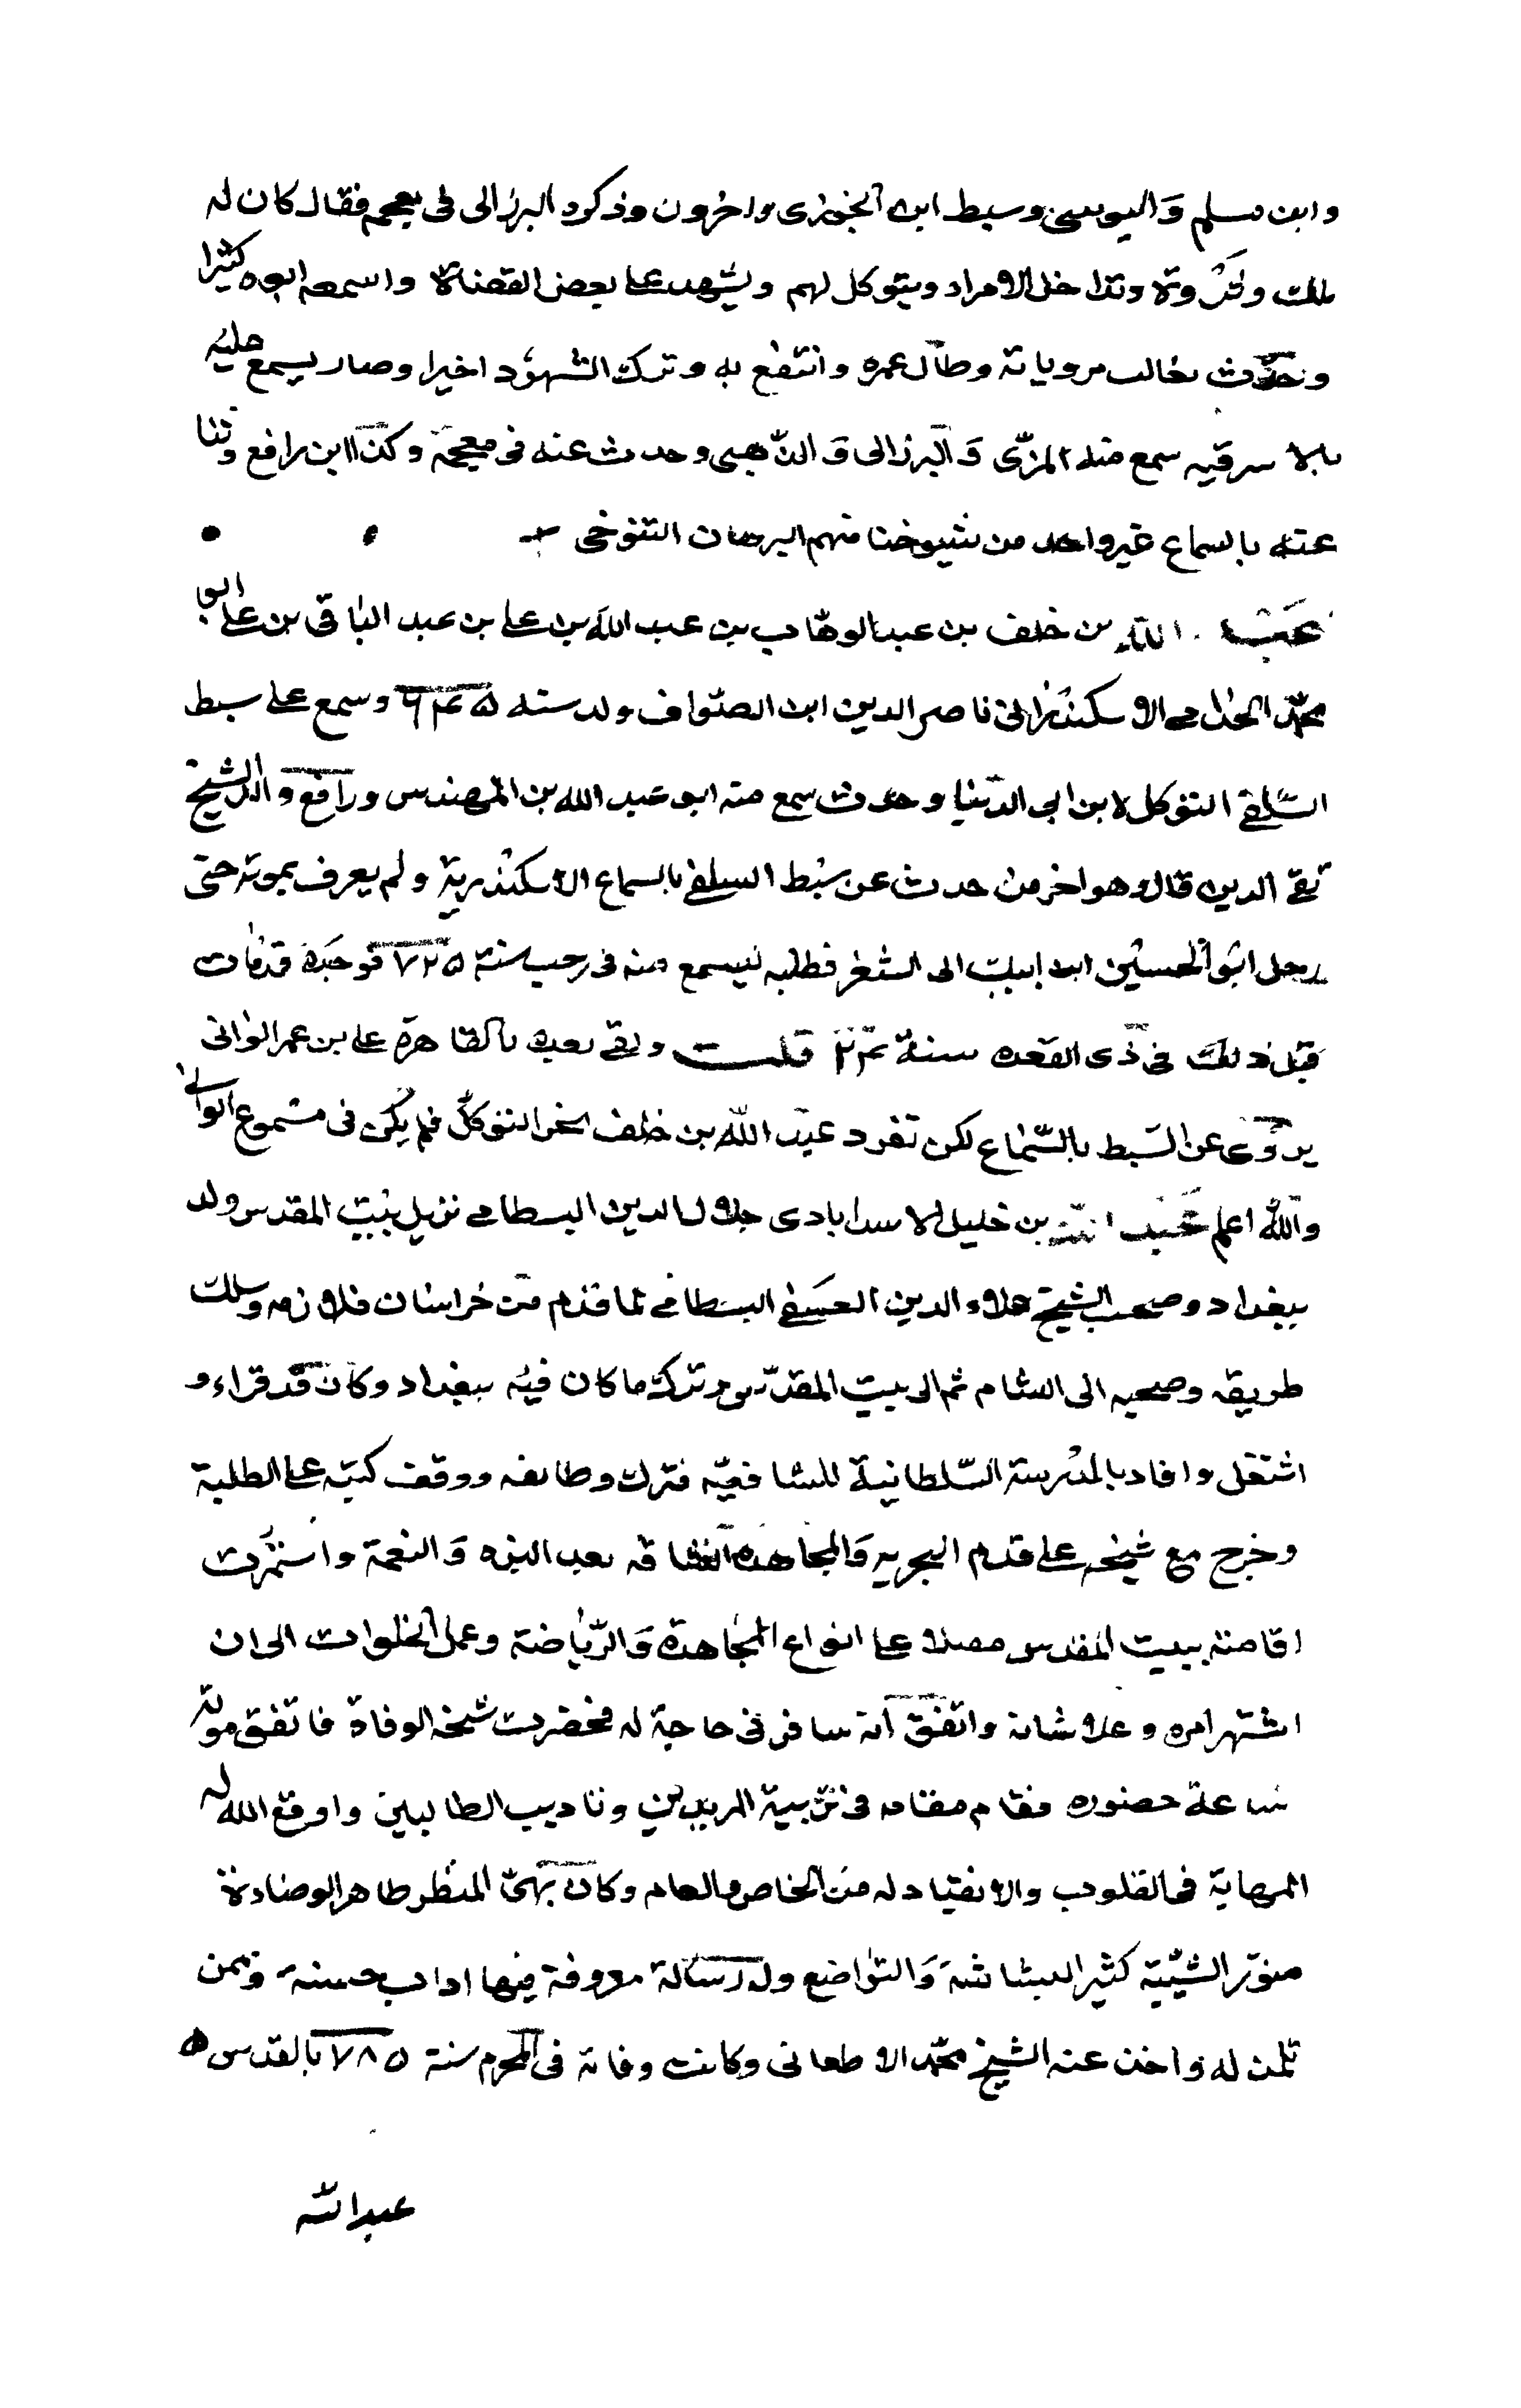 وابن مسلم وَاليونيني وسبط ابن الجوزى واخرون وذكره البرزالى فى معجمه فقال كان له
ملك وثروة وتداخل الامراد ويتوكل لهم ويشهد على بعض القضاة واسمعه ابوه كثيرا
وحدّث بغالب مروياته وطال عمره وانتفع به وترك الشهود اخيرا وصار يسمع عليه
سمع منه المزّى وَالبرزالى وَالذّهبى وحدث عنه فى معجمه وكذا ابن رافع وثنا
عنه بالسماع غير واحد من شيوخنا منهم البرهان التنوخى
عبد الله بن خلف بن عبد الوهّاب بن عبد الله بن على بن عبد الباقى بن على ابو
محمّد الجذامى الاسكندرانى ناصر الدين ابن الصوّاف ولد سنه ٦٤٥ وسمع على سبط
السّلفى التوكل لابن ابى الدنيا وحدث سمع منه ابو عبد الله بن المهندس ورافع والد الشيخ
تقى الدين قال وهو اخر من حدث عن سبط السلفى بالسماع الاسكندرية ولم يعرف بموته حتى
رحل ابو الحسين ابن ايبك الى الثغر فطلبه ليسمع منه فى رجب سنة ٧٢٥ فوجده قد مات
قبل ذلك فى ذى القعده سنة ٢٤ قلت وبقى بعده بالقاهرة على بن عمر الوانى
يروى عن السبط بالسّماع لكن تفرد عبد الله بن خلف التوكل فلم يكن فى مسموع الوانى
والله اعلم عبد الله بن خليل الاسدابادى جلال الدين البسطامى نزيل بيت المقدس ولد
ببغداد وصحب الشيخ علاء الدين العشقى البسطامى لما قدم من خراسان فلازمه وسلك
طريقه وصحبه الى الشام ثم الى بيت المقدّس وترك ما كان فيه ببغداد وكان قد قراء و
اشتغل وافاد بالمدرسة السّلطانية للشافعيّه فترك وظائفه ووقف كتبه على الطلبة
وخرج مع شيخه على قدم التجريد وَالمجاهدة الشاقه بعد النزه وَالنعمة واستمرت
اقامته ببيت المقدس على انواع المجاهدة وَالرّياضة وعمل الخلوات الى ان
اشتهر امره وعلا شانه واتفق انه سافر فى حاجة له فحضرت شيخه الوفاة فاتفق موته
ساعة حضوره فقام مقامه فى تربية المريدين وتاديب الطالبين واوقع الله له
المهابة فى القلوب والانقياد له من الخاص والعام وكان بهىّ المنظر ظاهر الوضاءة
منوّر الشيبة كثير البشاشة وَالتواضع وله رسالة معروفة فيها اداب حسنة وممن
تلمذ له واخذ عنه الشيخ محمّد الاطعانى وكانت وفاته فى المحرم سنة ٧٨٥ بالقدس ه
عبد الله